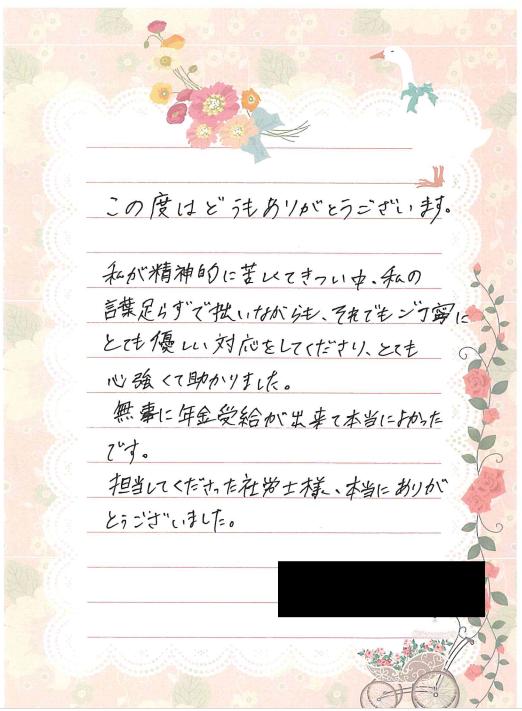 この度はどうもありがとうございます。
私が精神的に苦しくてきつい中、私の
言葉足らずで拙いながらも、それでもご丁寧に
とても優しい対応をしてくださり、とても
心強くて助かりました。
無事に年金受給が出来て本当によかった
です。
担当してくださった社労士様、本当にありが
とうございました。